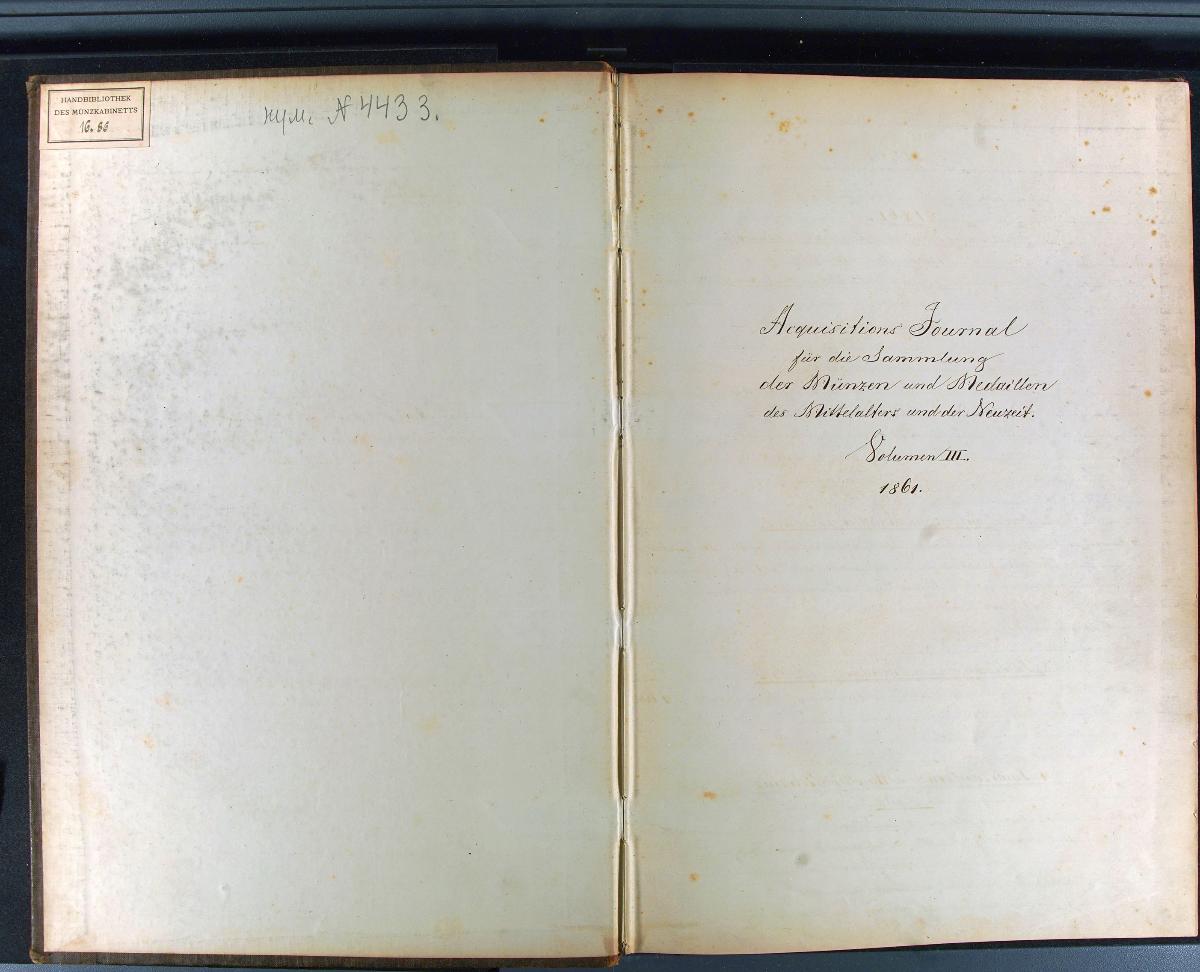 HANDBIBLIOTHEK
DES MÜNZKABINETTS
16.86
нум. № 4433.
Acquisitions Journal
für die Sammlung
der Münzen und Medaillen
des Mittelalters und der Neuzeit.
Volumen III.
1861.